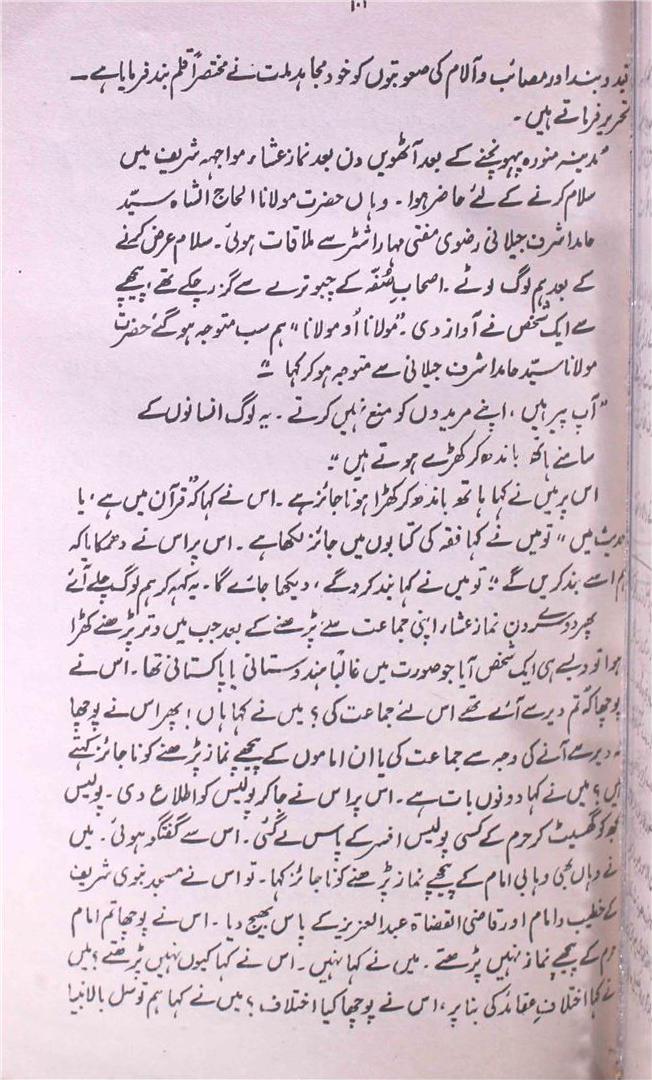 ۱۰۲
قید و بند اور مصائب و آلام کی صعوبتوں کو خود مجاہد ملت نے مختصراً قلم بند فرمایا ہے۔
تحریر فرماتے ہیں۔
"مدینہ منورہ پہونچنے کے بعد آٹھویں دن بعد نماز عشاء مواجہہ شریف میں
سلام کرنے کے لئے حاضر ہوا۔ وہاں حضرت مولانا الحاج الشاہ سیّد
حامد اشرف جیلانی رضوی مفتی مہاراشٹر سے ملاقات ہوئی۔ سلام عرض کرنے
کے بعد ہم لوگ لوٹے۔ اصحاب صُفّہ کے چبوترے سے گزر چکے تھے، پیچھے
سے ایک شخص نے آواز دی۔ "مولانا اُو مولانا" ہم سب متوجہ ہو گئے حضرت
مولانا سیّد حامد اشرف جیلانی سے متوجہ ہو کر کہا :-
"آپ پیر ہیں، اپنے مریدوں کو منع نہیں کرتے۔ یہ لوگ انسانوں کے
سامنے ہاتھ باندھ کر کھڑے ہوتے ہیں"
اس پر میں نے کہا ہاتھ باندھ کر کھڑا ہونا جائز ہے۔ اس نے کہا کہ "قرآن میں ہے، یا
حدیث میں" تو میں نے کہا فقہ کی کتابوں میں جائز لکھا ہے۔ اس پر اس نے دھمکایا کہ
ہم اسے بند کریں گے" تو میں نے کہا بند کر دگے، دیکھا جائے گا۔ یہ کہہ کر ہم لوگ چلے آئے
پھر دوسرے دن نماز عشاء اپنی جماعت سے پڑھنے کے بعد جب میں وتر پڑھنے کھڑا
ہوا تو ویسے ہی ایک شخص آیا جو صورت میں غالباً ہندوستانی یا پاکستانی تھا۔ اس نے
پوچھا کہ تم دیر سے آئے تھے اس لئے جماعت کی؟ میں نے کہا ہاں! پھر اس نے پوچھا
کہ دیر سے آنے کی وجہ سے جماعت کی یا ان اماموں کے پیچھے نماز پڑھنے کو ناجائز کہتے
ہیں؟ میں نے کہا دونوں بات ہے۔ اس پر اس نے جا کر پولیس کو اطلاع دی۔ پولیس
مجھ کو گھسیٹ کر حرم کے کسی پولیس افسر کے پاس لے گئی۔ اس سے گفتگو ہوئی۔ میں
نے وہاں بھی وہابی امام کے پیچھے نماز پڑھنے کو ناجائز کہا۔ تو اس نے مسجد نبوی شریف
کے خطیب و امام اور قاضی القضاۃ عبد العزیز کے پاس بھیج دیا۔ اس نے پوچھا تم امام
حرم کے پیچھے نماز نہیں پڑھتے۔ میں نے کہا نہیں۔ اس نے کہا کیوں نہیں پڑھتے؟ میں
نے کہا اختلافِ عقائد کی بنا پر، اس نے پوچھا کیا اختلاف؟ میں نے کہا ہم توسل بالانبیا